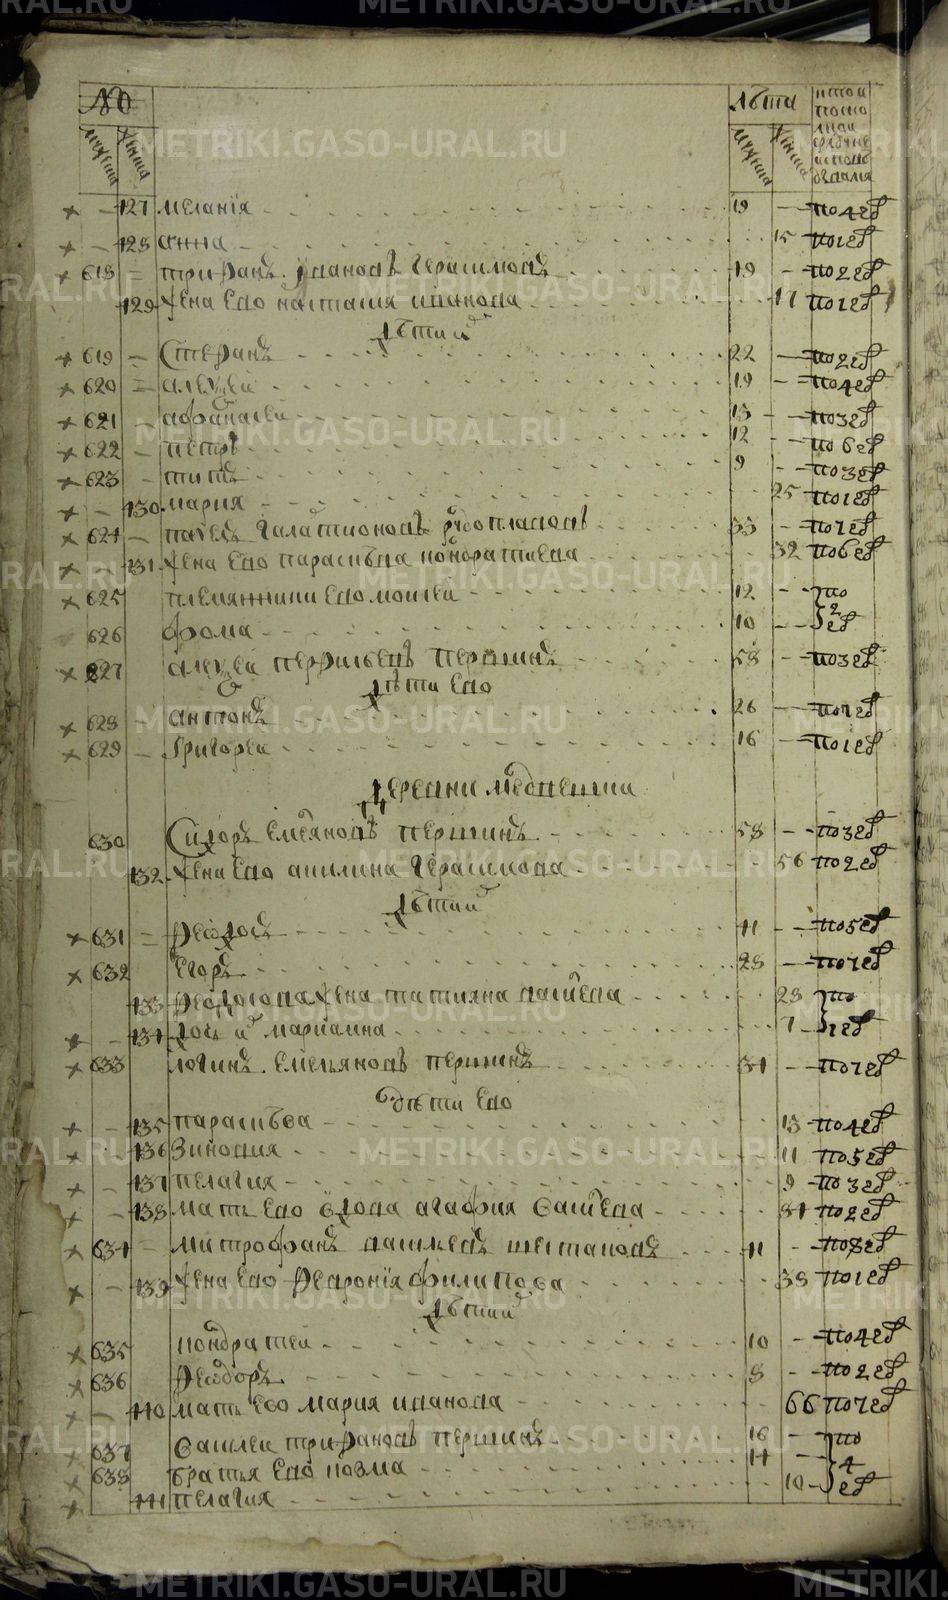 METRIKI.GASO-URAL.RU
№ Лѣта
мужеска женска мужеска женска
127 Мелания 19 по 4 ев
128 Анна 15 по 1 ев
618 Трифанъ Ивановъ Герасимовъ 19 по 2 ев
129 Жена ево Настасия Иванова 17 по 1 ев
Дѣти
619 Стефанъ 22 по 2 ев
620 Алеѯей 19 по 4 ев
621 Афонасеи 13 по 3 ев
622 Петръ 12 по 6 ев
623 Титъ 9 по 3 ев
130 Мария 25 по 1 ев
624 Павелъ Галактионовъ 33 по 1 ев
131 Жена ево Параскѣва Кондратиева 32 по 6 ев
625 Племянники ево Моисеи 12 по
626 Фома 10 2 ев
627 Алеѯей Перфильевъ Першинъ 58 по 3 ев
Дѣти ево
628 Антонъ 26 по 1 ев
629 Григореи 16 по 1 ев
Деревни Медвешии
630 Сидоръ Емеяновъ Першинъ 58 по 3 ев
132 Жена ево Акилина Герасимова 56 по 2 ев
Дѣти
631 Феѡдосъ 11 по 5 ев
632 Егоръ 28 по 1 ев
133 Феодосова жена Татияна 28 по
134 дочь Мариамна 7 1 ев
633 Логинъ Емельяновъ Першинъ 34 по 1 ев
Дѣти ево
135 Параскѣва 13 по 4 ев
136 Зиновия 11 по 5 ев
137 Пелагия 9 по 3 ев
138 Мать ево вдова Агафия 84 по 2 ев
634 Митрофанъ Шестаковъ 41 по 8 ев
139 Жена ево Феврония Филипова 38 по 1 ев
Дѣти
635 Кондратеи 10 по 4 ев
636 Феѡдоръ 8 по 2 ев
140 Мать ево Мария Иванова 66 по 1 ев
637 Василеи Трифановъ Першинъ 16 по
638 Братья ево Козма 14 4
141 Пелагия 10 ев